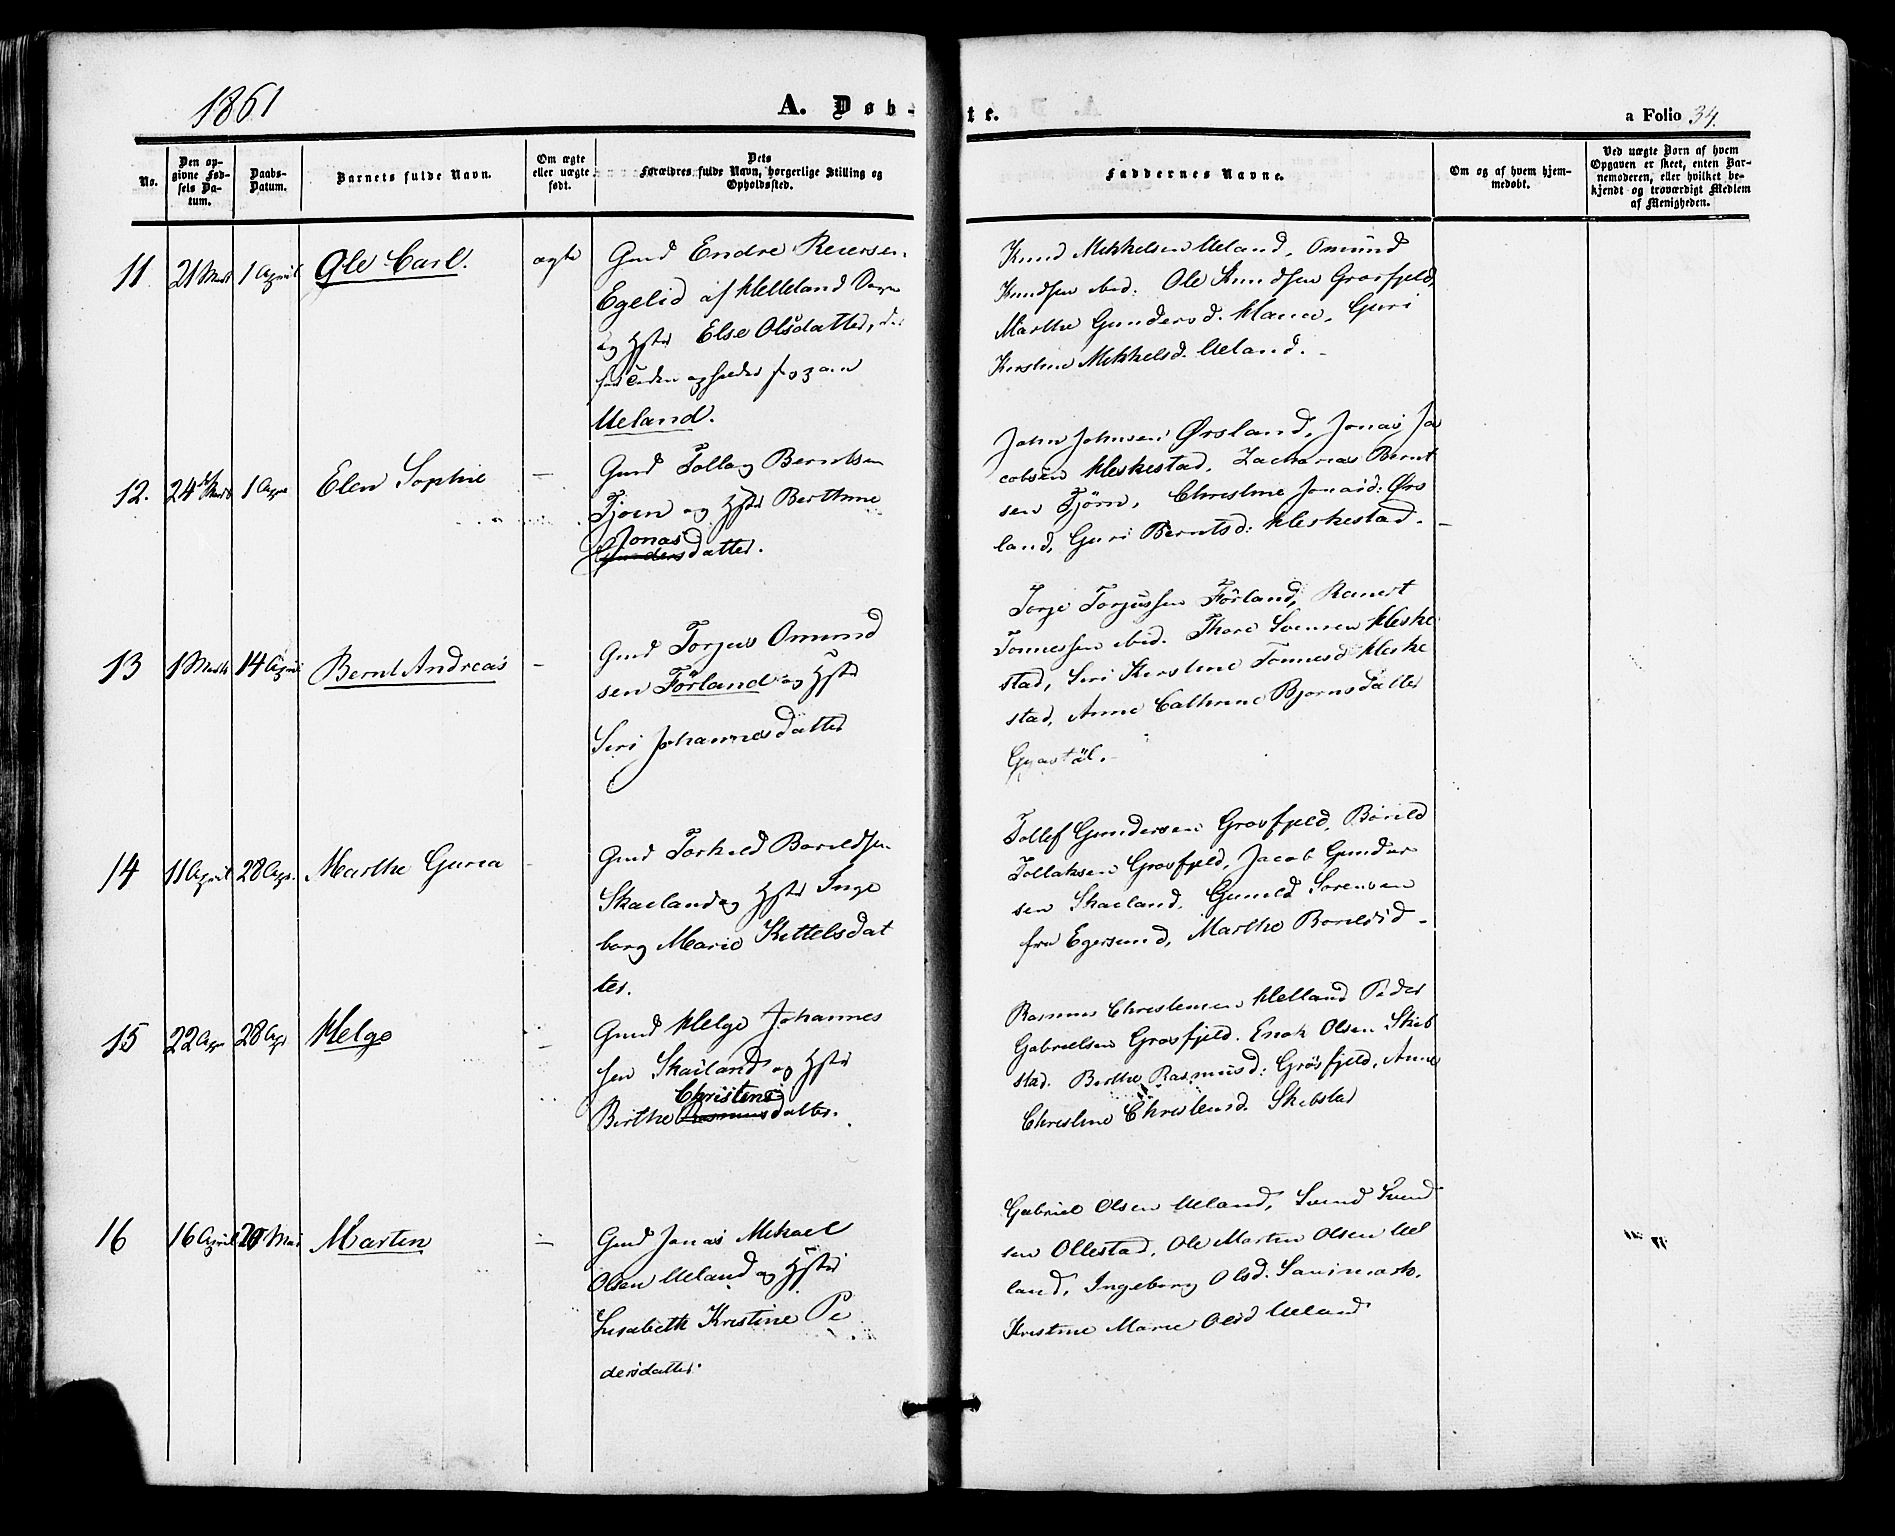 1861
A. Døb-
te.
a Folio 34.
No.
Den op-
givne Fød-
sels Da-
tum.
Daabs-
Datum.
Barnets fulde Navn.
Om ægte
eller uægte
født.
Dets
Forældres fulde Navn, borgerlige Stilling og
Opholdssted.
Faddernes Navne.
Om og af hvem hjem-
medøbt.
Ved uægte Børn af hvem
Opgaven er skeet, enten Bar-
nemoderen, eller hvilket be-
kjendt og troværdigt Medlem
af Menigheden.
11. 21 1 April Ole Carl. ægte
Gmd Endre Reiersen
Egelid af Helleland
og Hstr Else Olsdatter,
Ueland.
Knud Mikkelsen Ueland, Omund
Knudsen ibid. Ole Knudsen Grosfjeld,
Marthe Gundersd. Guri
Kirstine Mikkelsd. Ueland.
12. 24 1 Elen Sophie —
Gmd Tollag Berntsen
Tjörn og Hstr Berthine
Jonas
Gundersdatter.
John Johnsen Ørsland, Jonas Ja
cobsen Heskestad, Zacharias Bernt
sen Tjörn, Christine Jonasd: Ørs
land, Guri Berntsd: Heskestad.
13 1 14 April Bernt Andreas —
Gmd Torjus Omund
sen Förland og Hstr
Siri Johannesdatter
Torje Torjussen Förland,
Tonnessen ibid. Thore Svensen Heske
stad, Siri Kirstine Tonnesd Heske
stad, Anne Cathrine Bjornsdatter
14 11 April 28 Apr. Marthe Guria
Gmd Torkild Boreldsen
Skaeland og Hstr Inge
borg Marie Kittelsdat
ter.
Tollef Gundersen Grosfjeld, Böreld
Tollaksen Grosfjeld, Jacob Gunder
sen Skaeland, Gunild Sorensen
fra Egersund, Marthe Boreldsd —
15 22 Apr 28 Apr Helge —
Gmd Helge Johannes
sen Skaeland og Hstr
Christens
Birthe Rasmusdatter.
Rasmus Christensen Helland Peder
Gabrielsen Grosfjeld. Enok Olsen Skieb
stad. Birthe Rasmusd: Grösfjeld, Anne
Christine Christensd. Skebstad
16 16 April 20 Mai Marten —
Gmd Jonas Mikael
Olsen Ueland og Hstr
Lisabeth Kristine Pe
dersdatter
Gabriel Olsen Ueland, Svend Svend
sen Ollestad, Ole Martin Olsen Ue
land, Ingeborg Olsd.
Kristine Marie Olsd Ueland